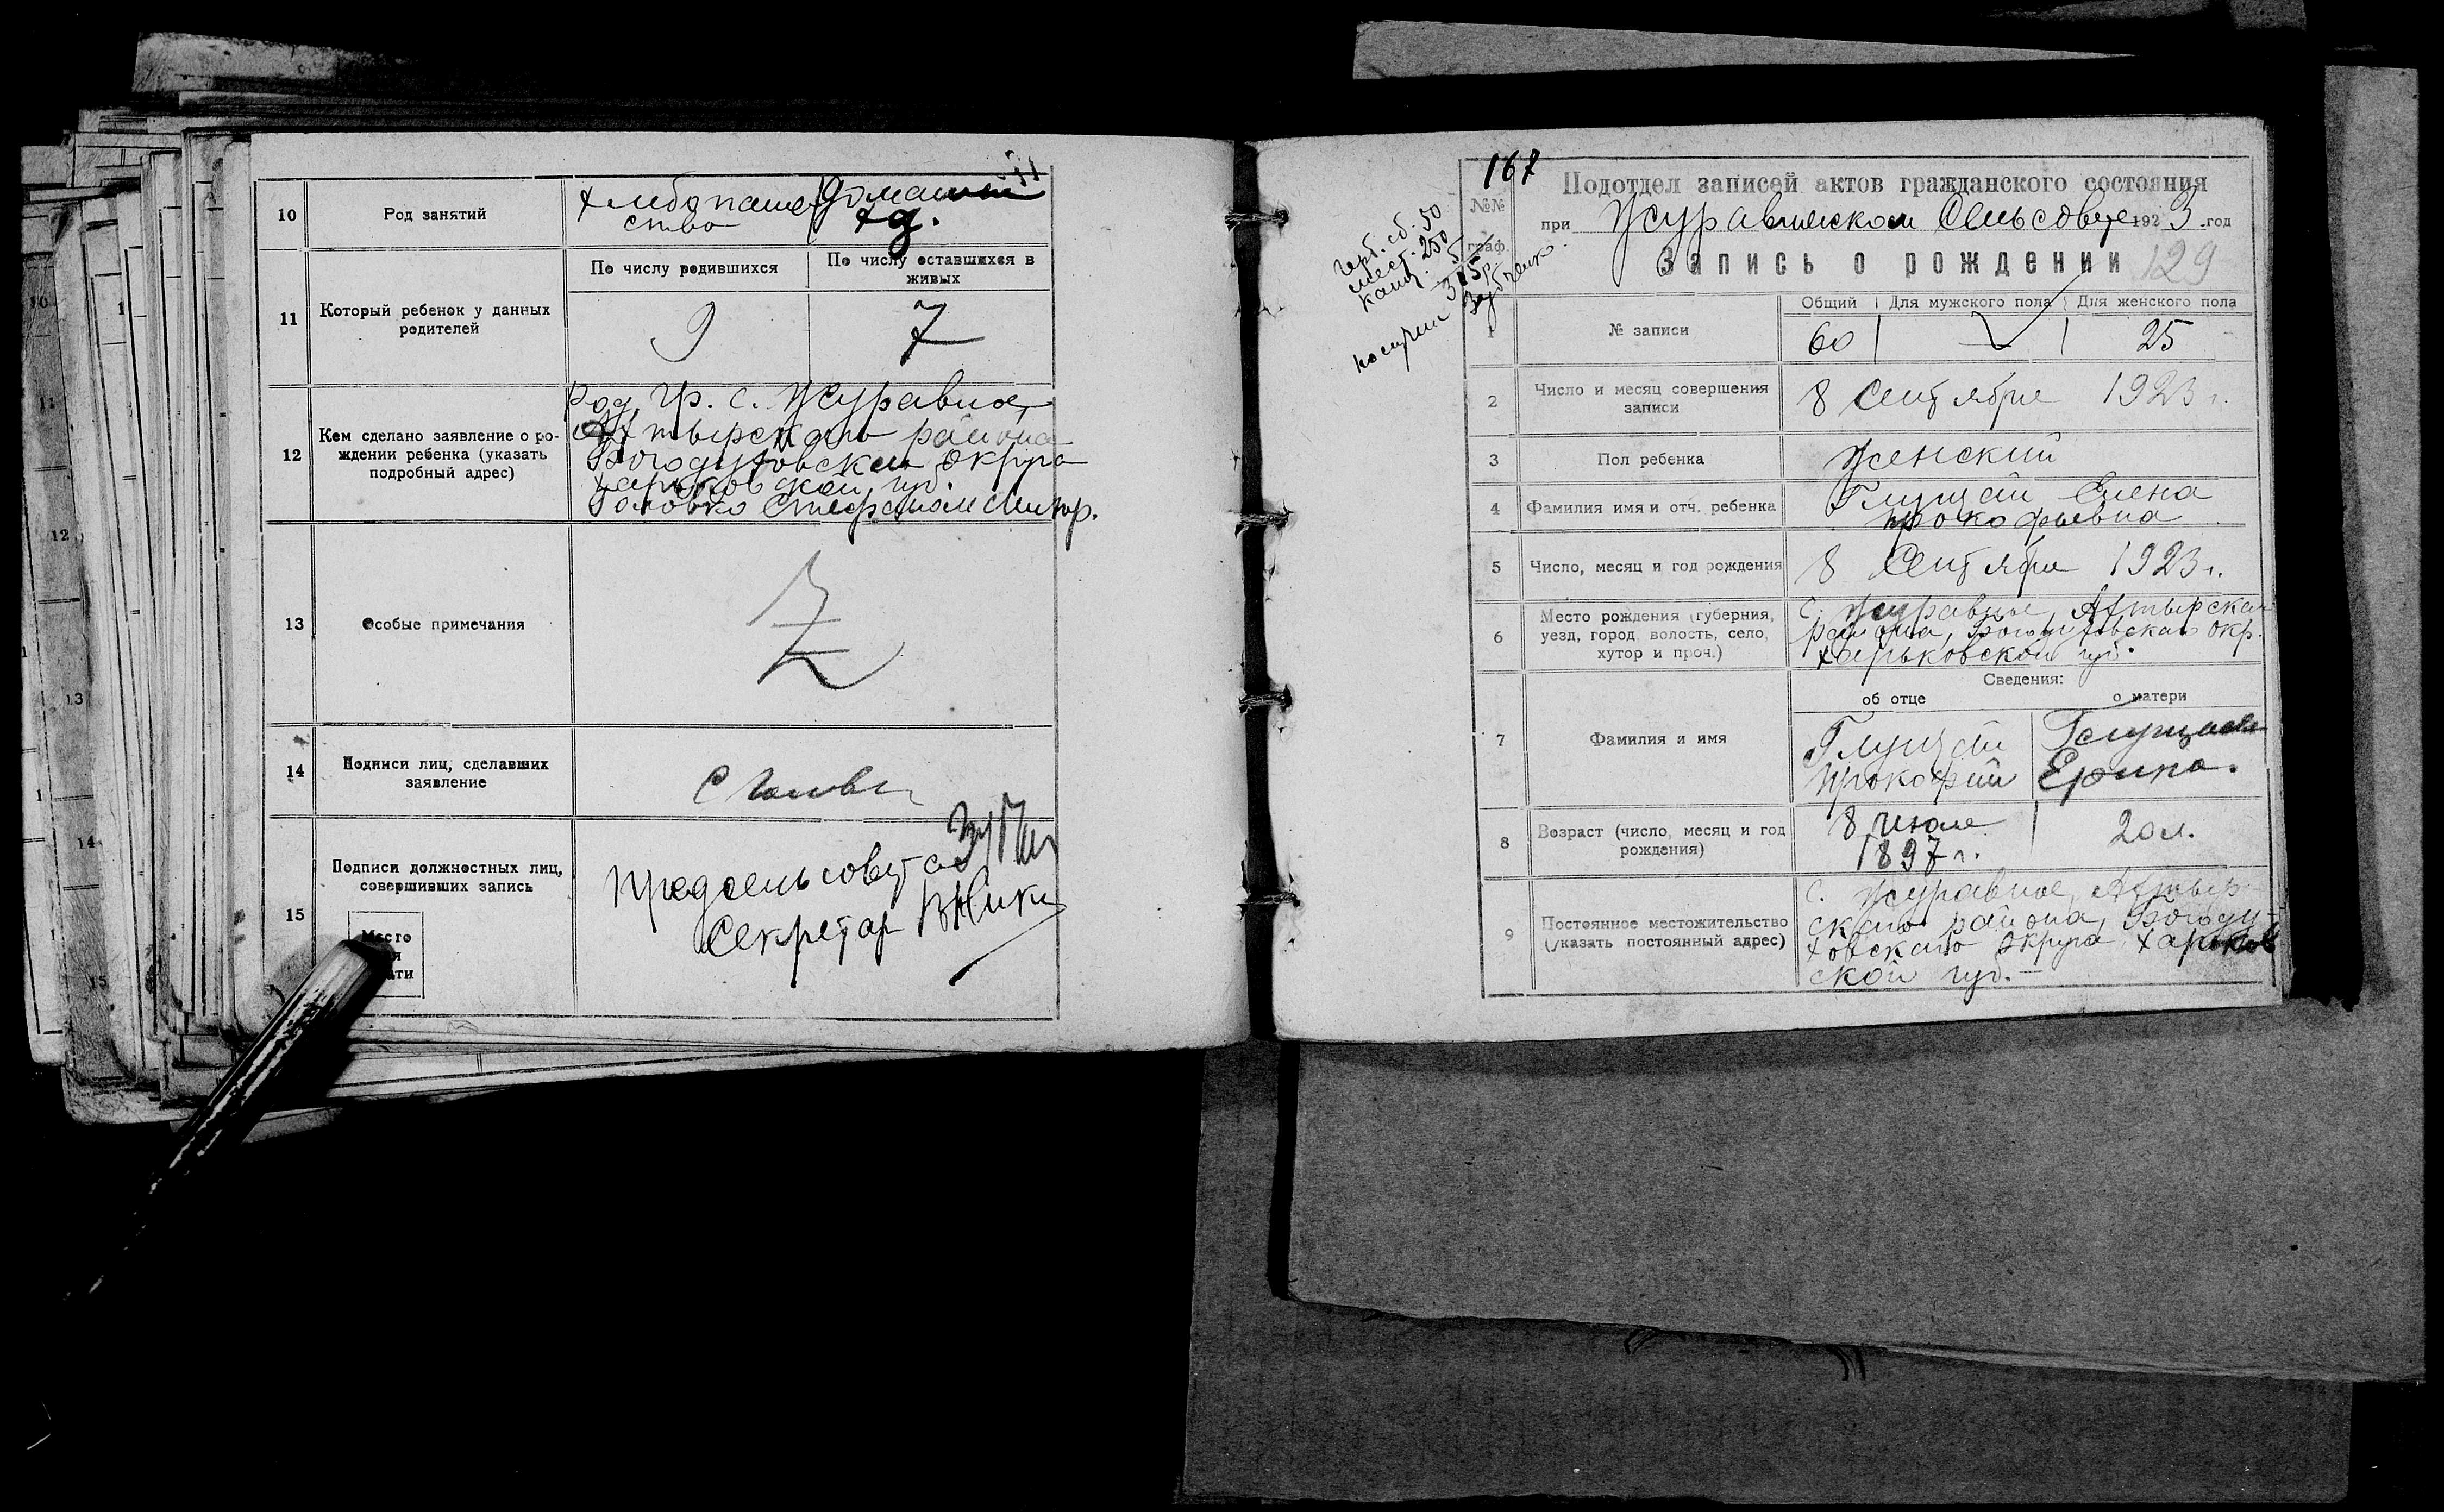 10
Род занятий
хлебопаше
ство
домашн
х д.
11
Который ребенок у данных
родителей
По числу родившихся
По числу оставшихся в
живых
9
7
12
Кем сделано заявление о ро-
ждении ребенка (указать
подробный адрес)
гр. с. Журавное,
Ахтырского района
Богодуховского округа
Харьковской губ.
Головко Стефаном
13
Особые примечания
14
Подписи лиц, сделавших
заявление
15
Подписи должностных лиц,
совершивших запись
Место
Предсельсовета
Секретар
167
№№
граф.
Подотдел записей актов гражданского состояния
при Журавлиском Сельсовете 1923 год
Запись о рождении
129
герб. сб. 50
мест. 250
канц.
1
№ записи
Общий
Для мужского пола
Для женского пола
60
25
2
Число и месяц совершения
записи
8 Сентября 1923 г.
3
Пол ребенка
Женский
4
Фамилия имя и отч. ребенка
Глущай Елена
Прокофьевна
5
Число, месяц и год рождения
8 Сентября 1923 г.
6
Место рождения (губерния,
уезд, город, волость, село,
хутор и проч.)
с. Журавное, Ахтырская
района, Богодуховская окр.
Харьковской губ.
7
Фамилия и имя
Сведения:
об отце
о матери
Глущай
Прокофий
Глущаева
Ерина.
8
Возраст (число, месяц и год
рождения)
8 июля
1897 г.
20 л.
9
Постоянное местожительство
(указать постоянный адрес)
с. Журавное, Ахтыр-
ского района, Богоду-
ховского округа Харьков
ской губ. —